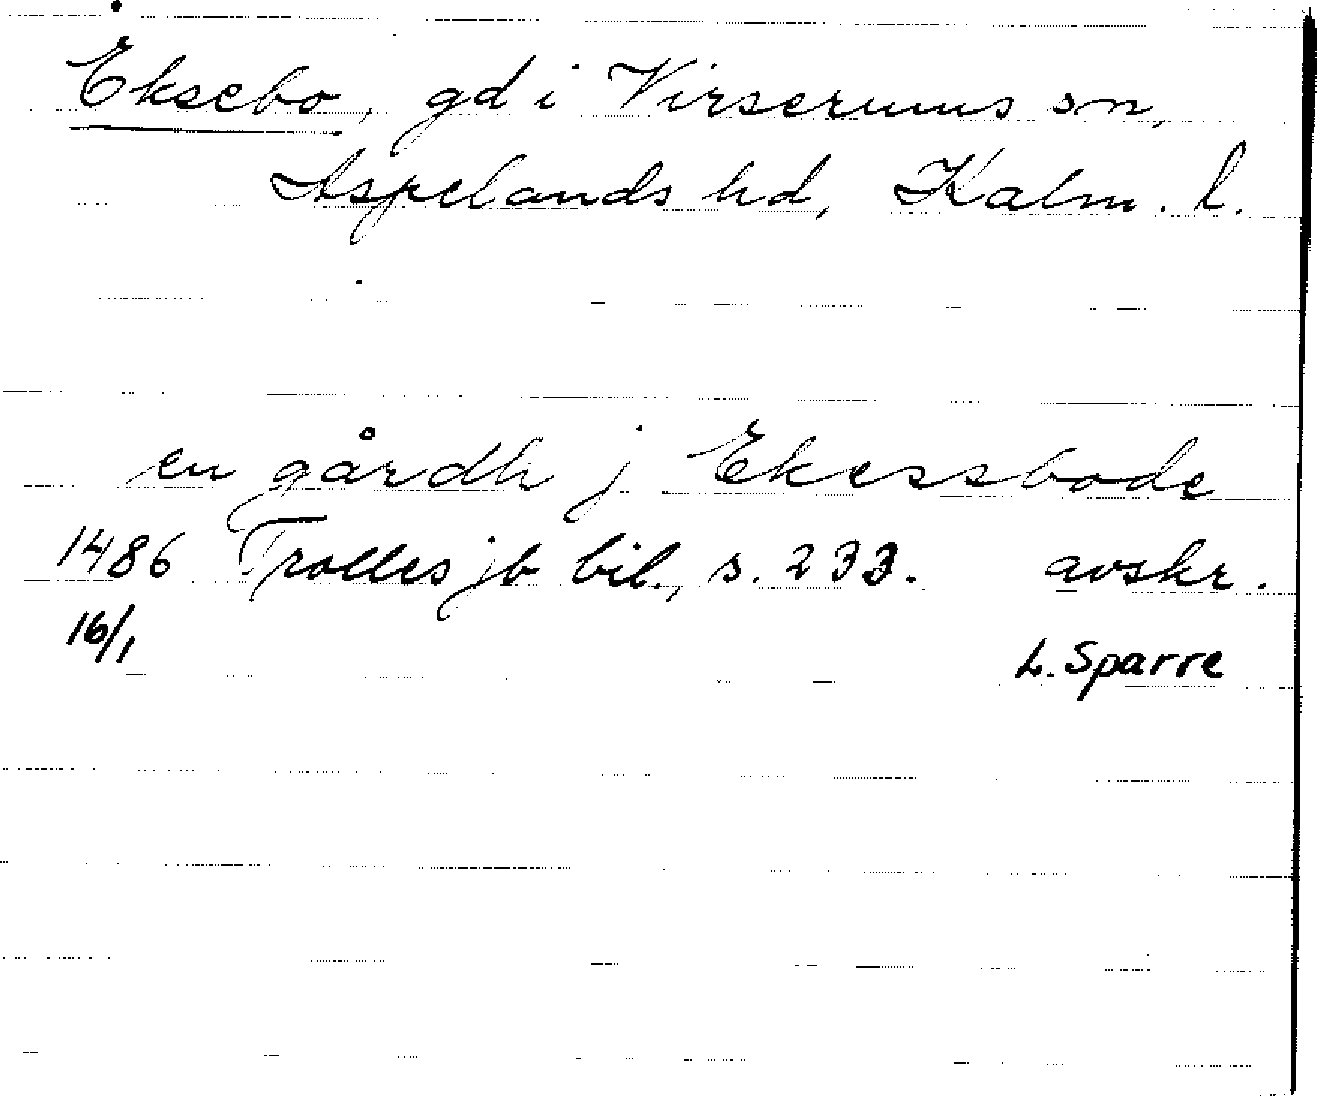 Eksebo, gd i Virserums sn,
Aspelands hd, Kalm. l.
en gårdh j Ekessbode
1486 Trolles jb bil., s. 233. avskr.
16/1 L. Sparre